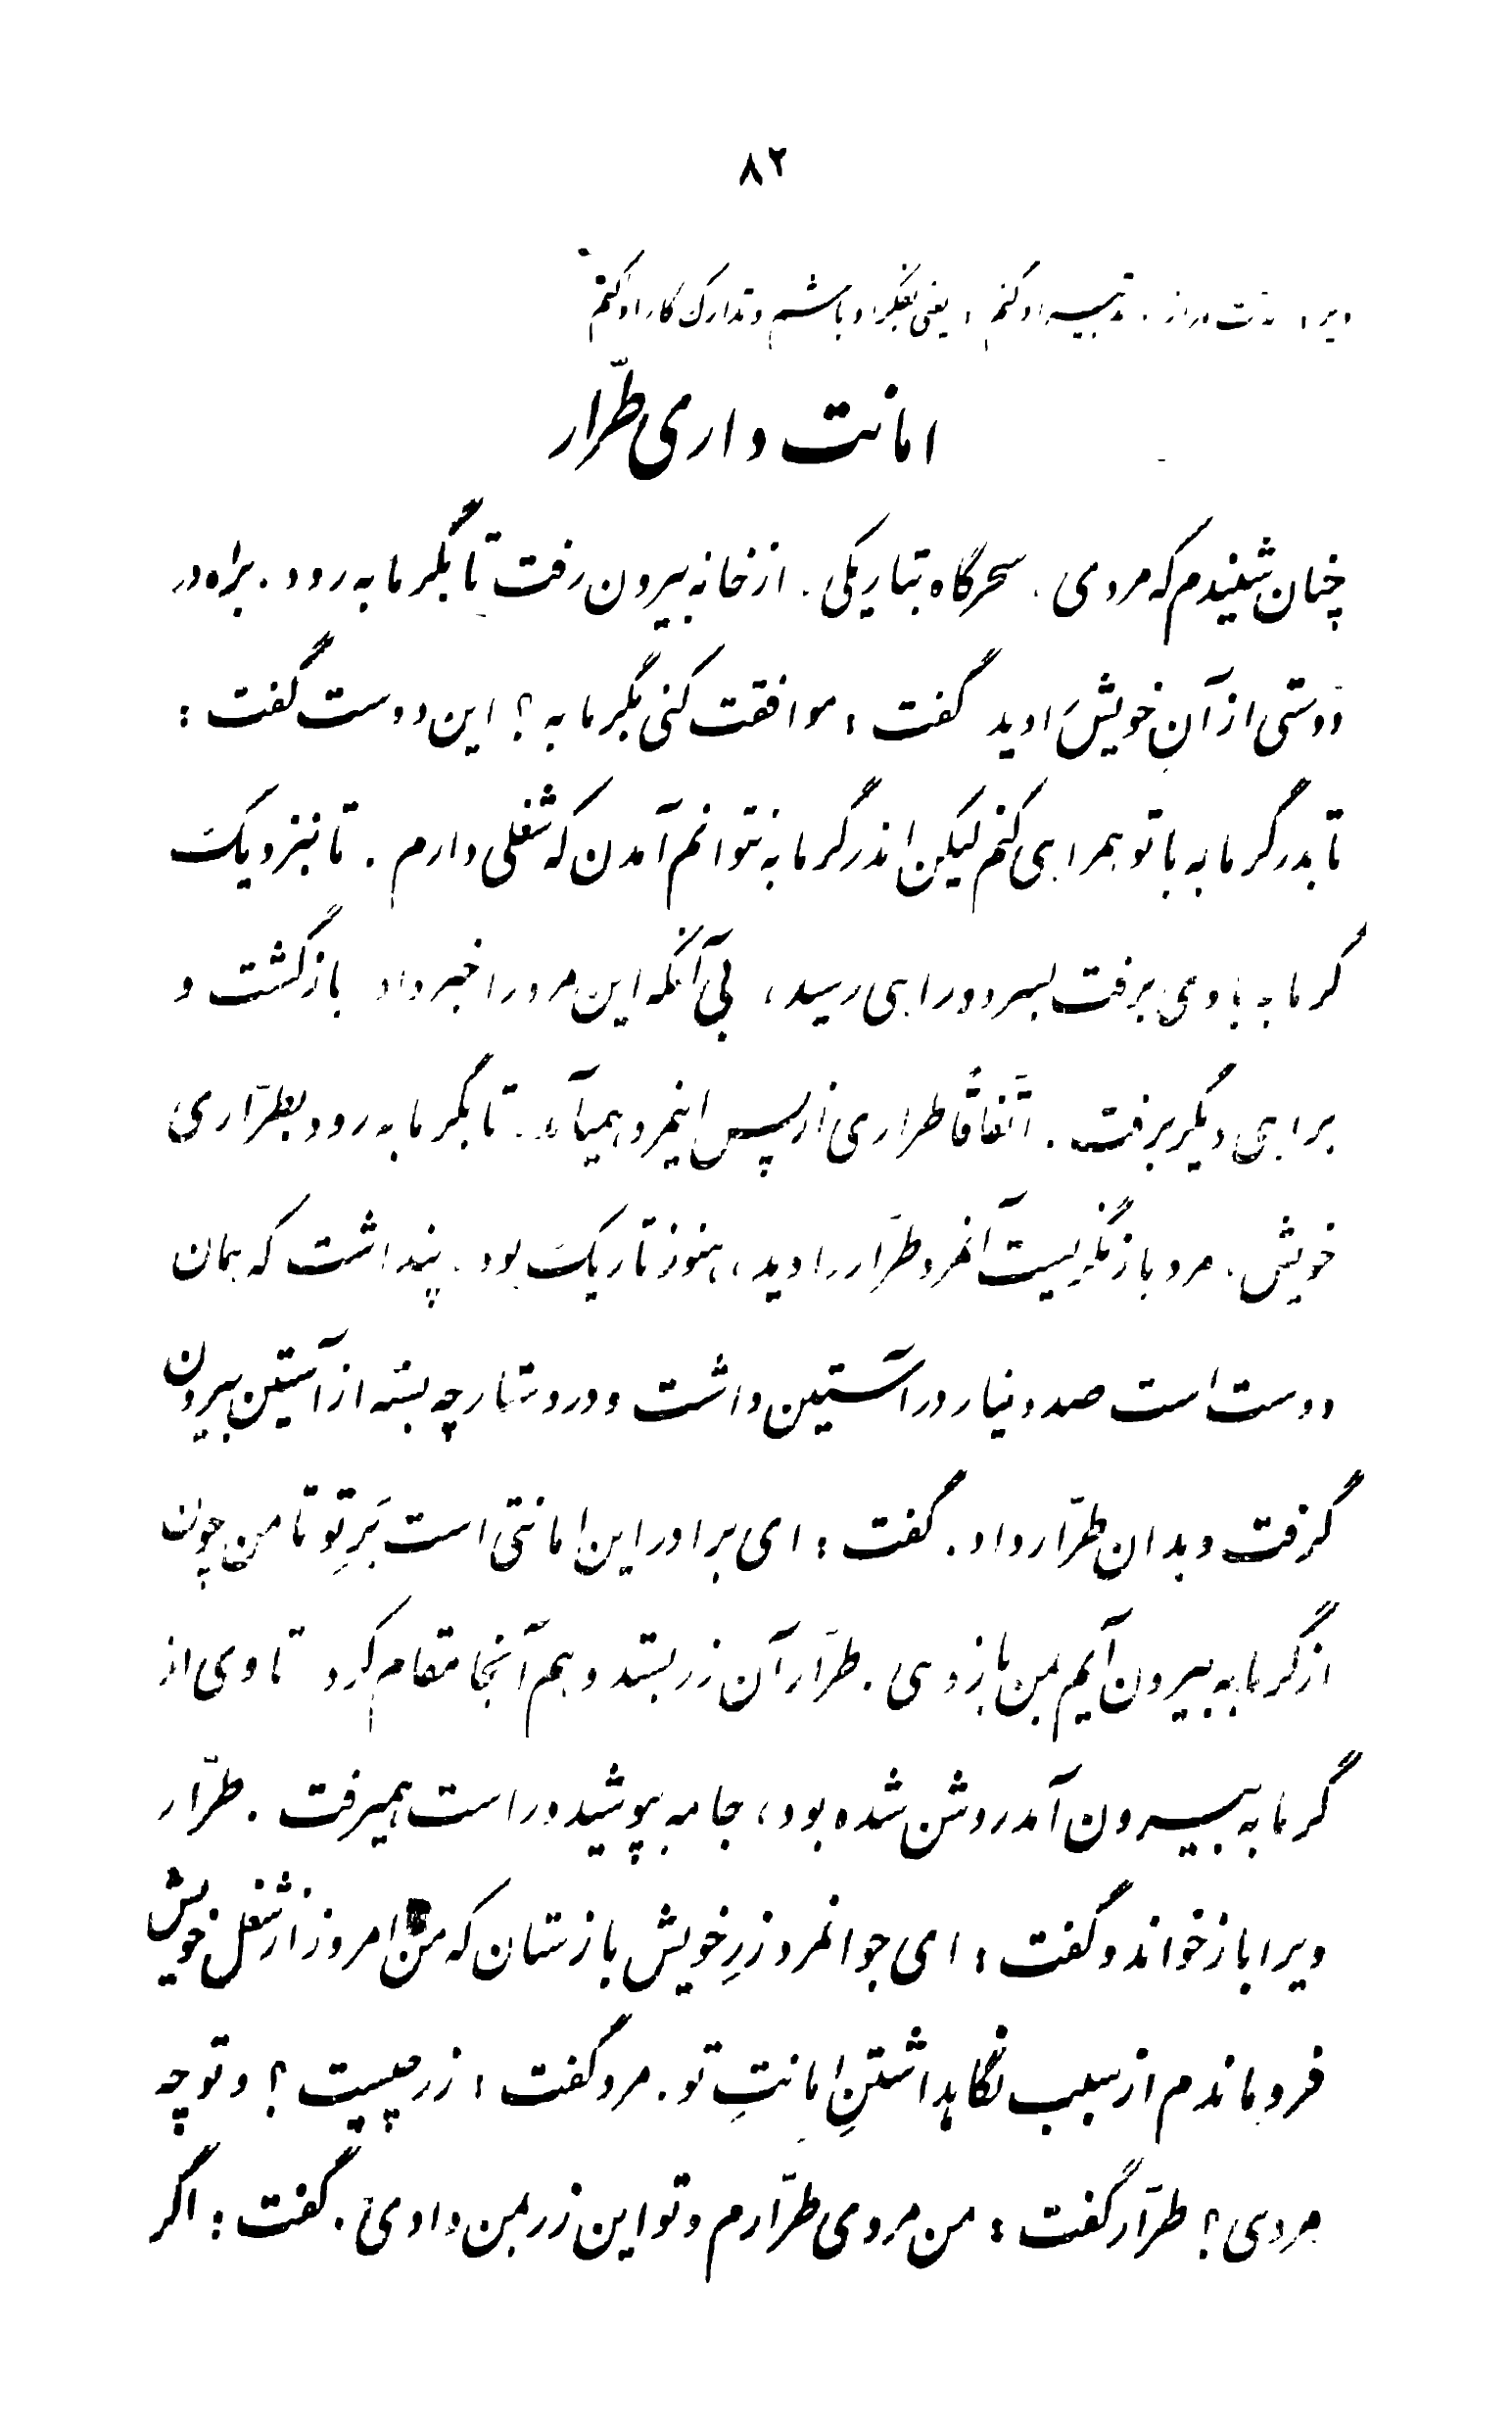 ۸۲
دیر: مدّت دراز. تدبیر او کنم: یعنی بفکر او باشم و تدارک کار او کنم
امانت داری طرّار
چنان شنیدم که مردی. سحرگاه بتاریکی. از خانه بیرون رفت تا بگرمابه رود. براه در
دوستی از آنِ خویش را دید گفت: موافقت کنی بگرمابه؟ این دوست گفت:
تا بدر گرمابه با تو همراهی کنم لیکن اندر گرمابه نتوانم آمدن که شغلی دارم. تا نزدیک
گرمابه با وی برفت بسر دوراهی رسید، بی آنکه این مرد را خبر داد بازگشت و
براهی دیگر برفت. اتّفاقاً طراری از پس اینمرد همیآمد. تا بگرمابه رود بطرّاری
خویش. مرد باز نگریست آنمرد طرّار را دید، هنوز تاریک بود. پنداشت که همان
دوست است صد دینار در آستین داشت و در دستارچه بسته از آستین بیرون
گرفت و بدان طرّار داد. گفت: ای برادر این امانتی است بَرِ تو تا من چون
از گرمابه بیرون آیم بمن باز دهی. طرّار آن زر بستد و هم آنجا مقام کرد تا وی از
گرمابه بیرون آمد روشن شده بود، جامه بپوشید و راست همیرفت. طرّار
ویرا باز خواند و گفت: ای جوانمرد زرِ خویش باز ستان که من امروز از شغل خویش
فرو ماندم از سبب نگاهداشتنِ امانتِ تو. مرد گفت: زر چیست؟ و تو چه
مردی؟ طرّار گفت: من مردی طرّارم و تو این زر بمن دادی. گفت: اگر